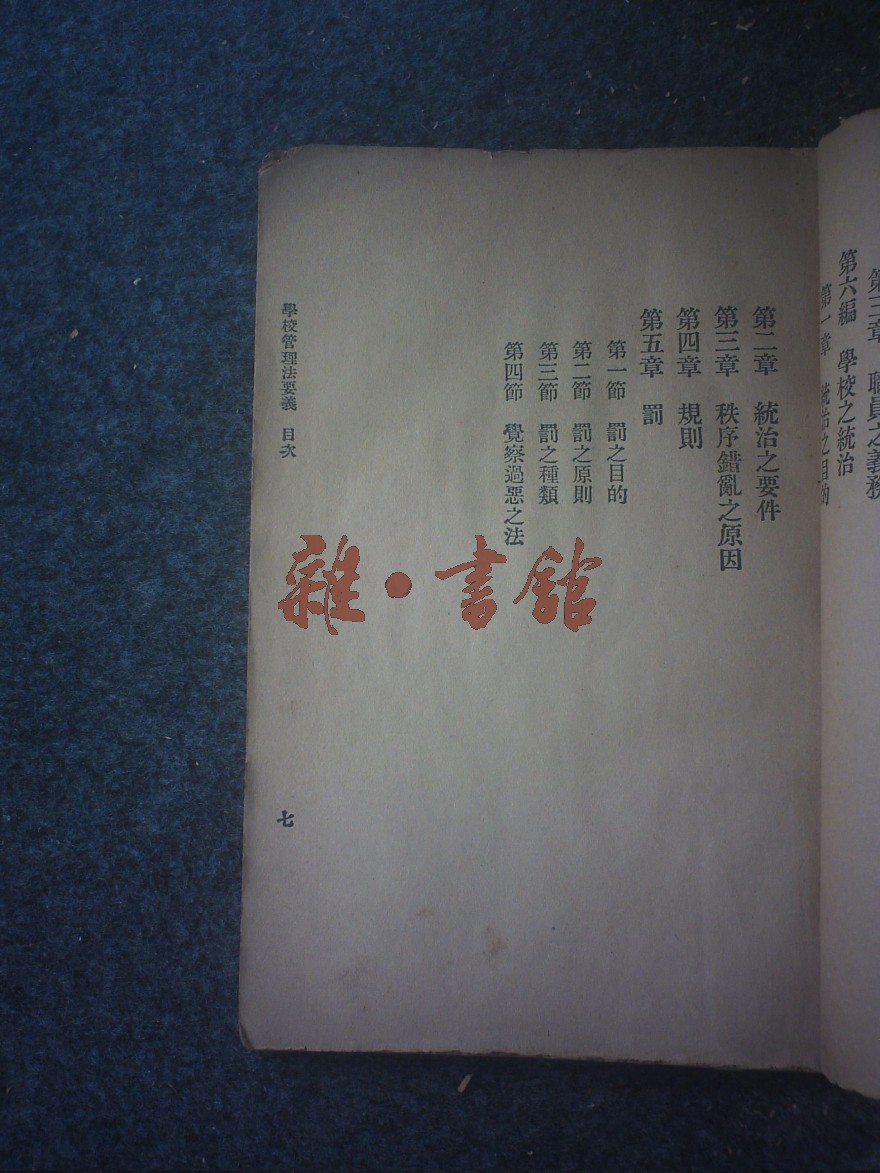 第三章　職員之義務
第六編　學校之統治
第一章　統治之目的
第二章　統治之要件
第三章　秩序錯亂之原因
第四章　規則
第五章　罰
第一節　罰之目的
第二節　罰之原則
第三節　罰之種類
第四節　覺察過惡之法
學校管理法要義　目次
七
雜·書館